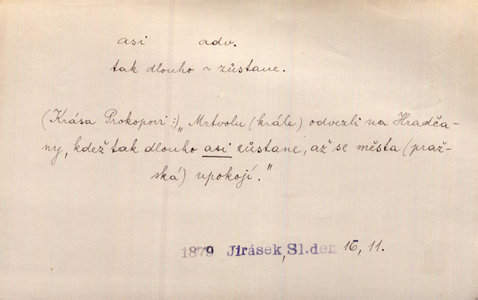 asi adv.
tak dlouho ~ zůstane.
(Krása Prokopovi:) „Mrtvolu (krále) odvezli na Hradča-
ny, kdež tak dlouho asi zůstane, až se města (praž-
ská) upokojí."
1879 Jirásek, Sl. den 16, 11.